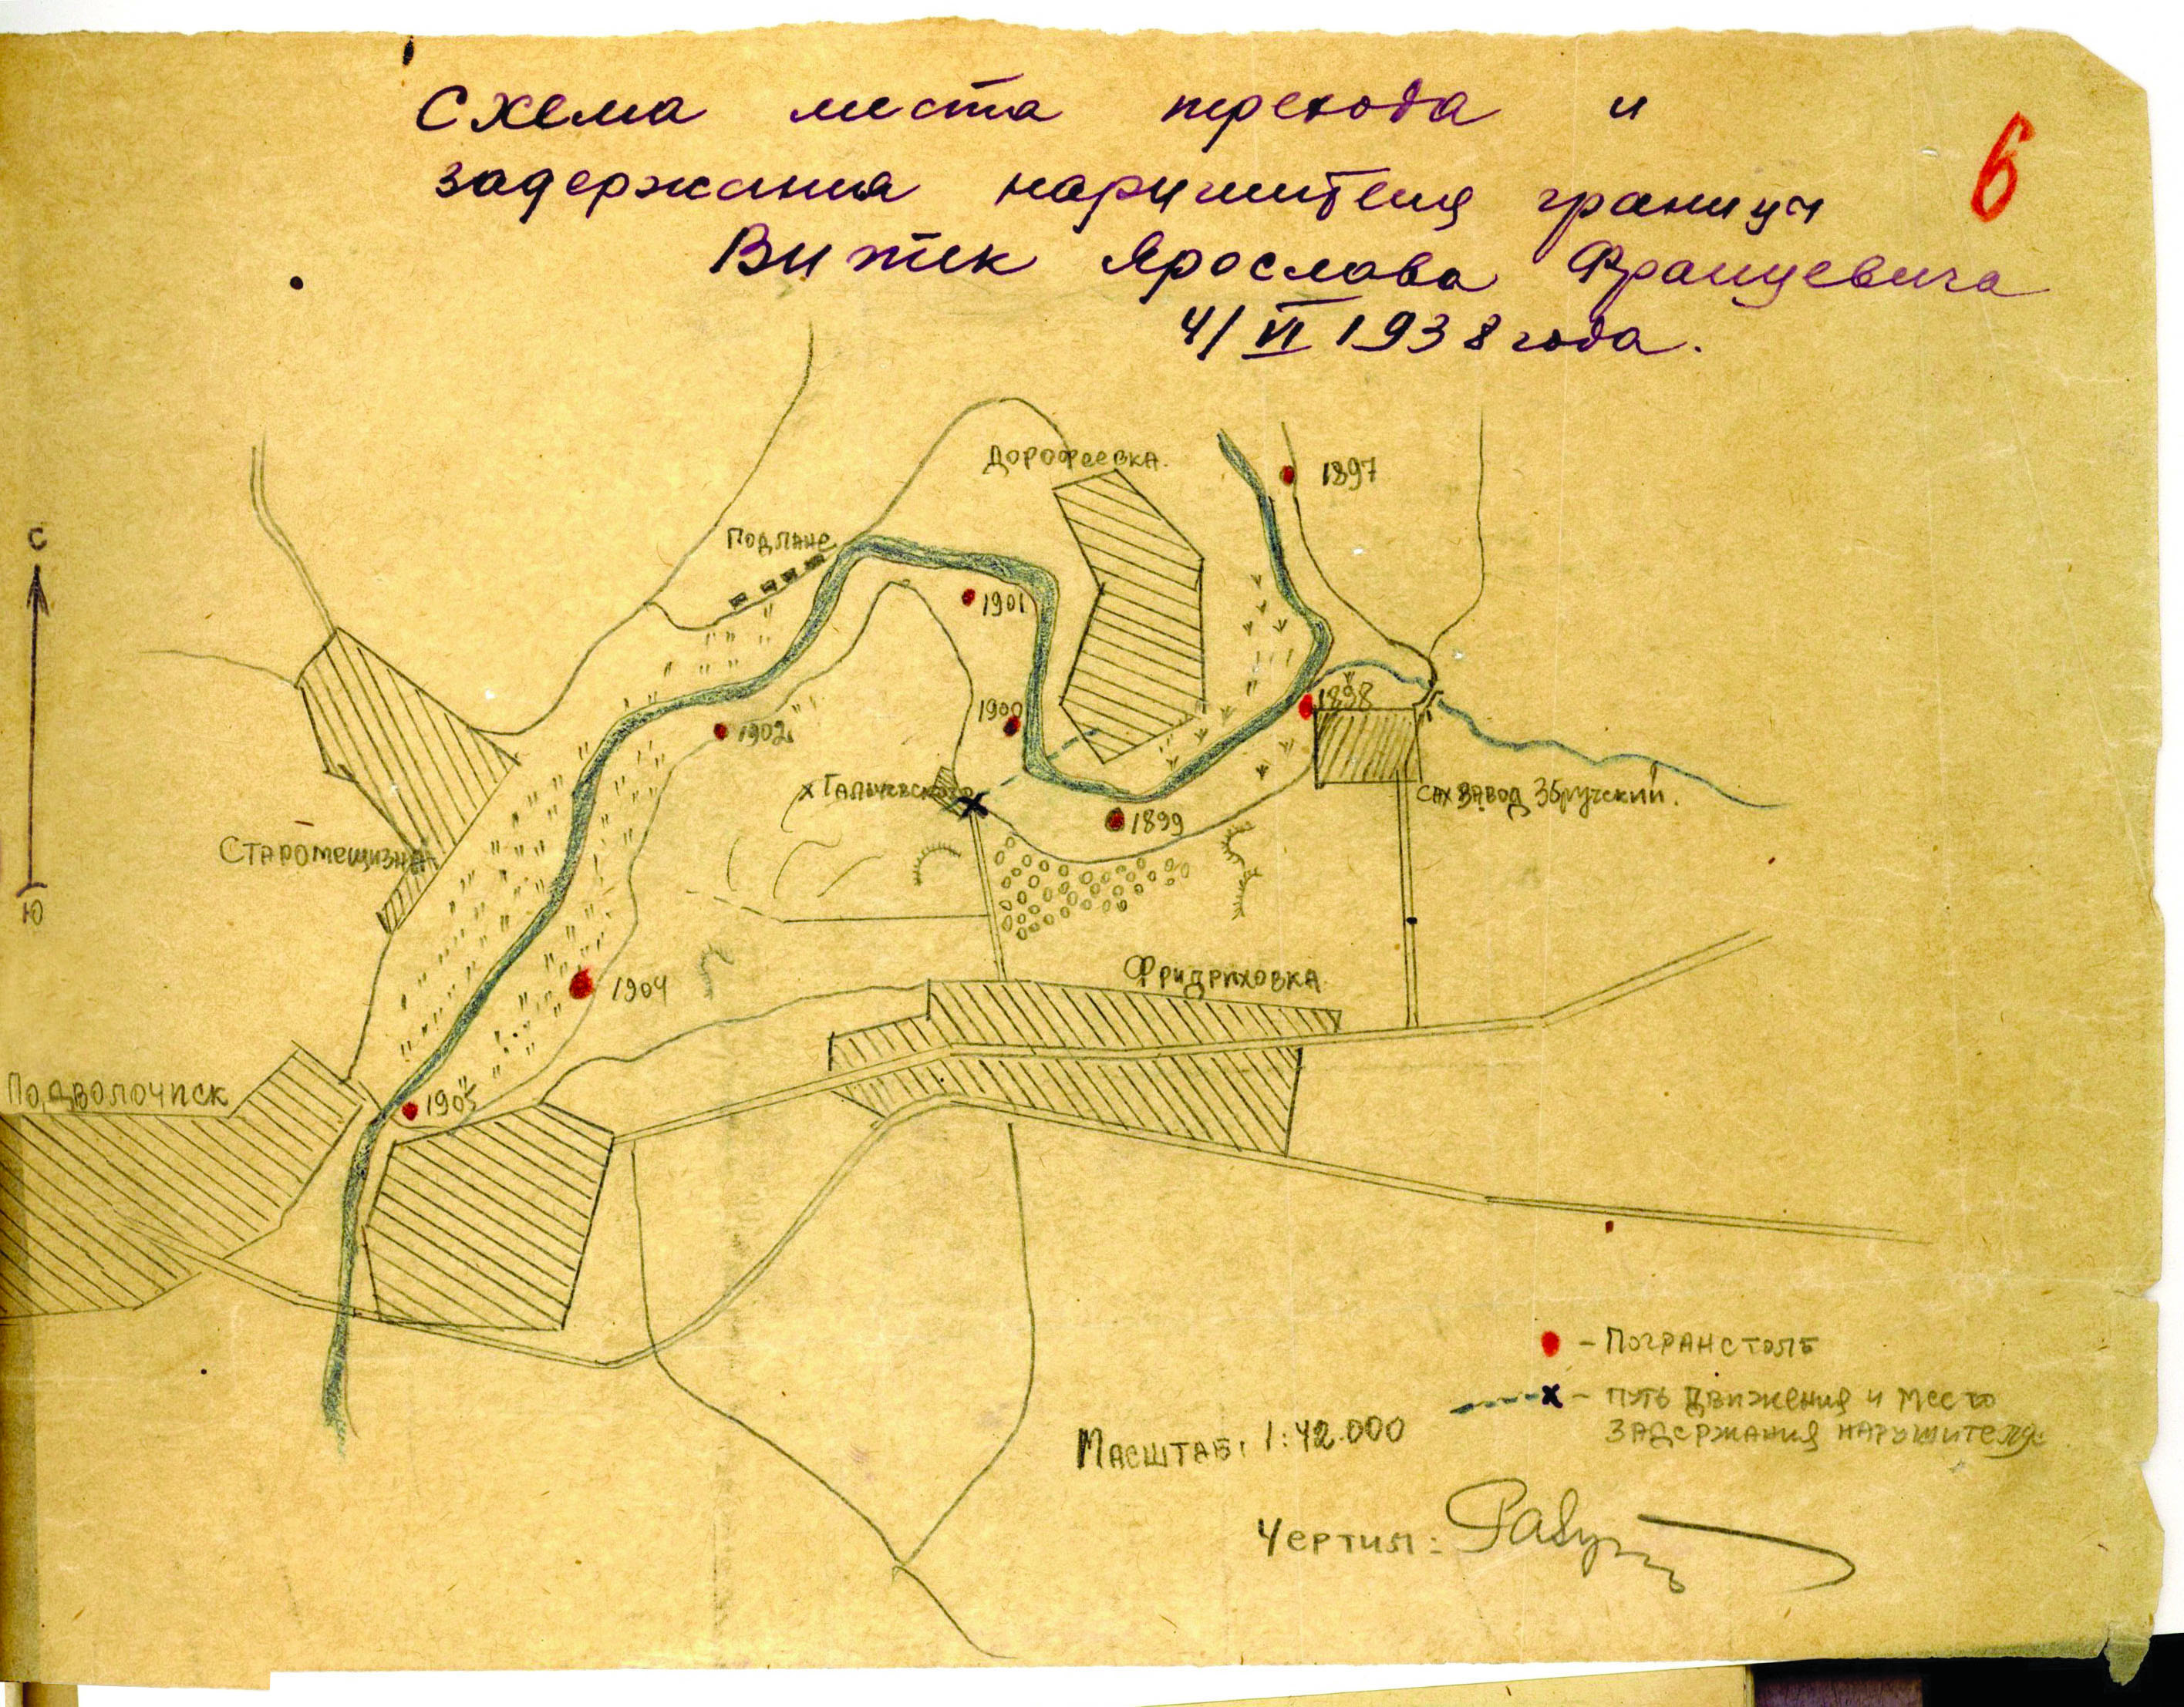 Схема места перехода и
задержания нарушителя границы
Витек Ярослава Францевича
4/VI 1938 года.
6
С
Ю
Дорофеевка.
1897
Подлане
1901
1898
1900
1902
х Гальчевского
1899
сахзавод Збручский.
Старомещизна
1904
Фридриховка
Подволочиск
1905
- Погранстолб
х - путь движения и место
задержания нарушителя
Масштаб: 1:42.000
Чертил: